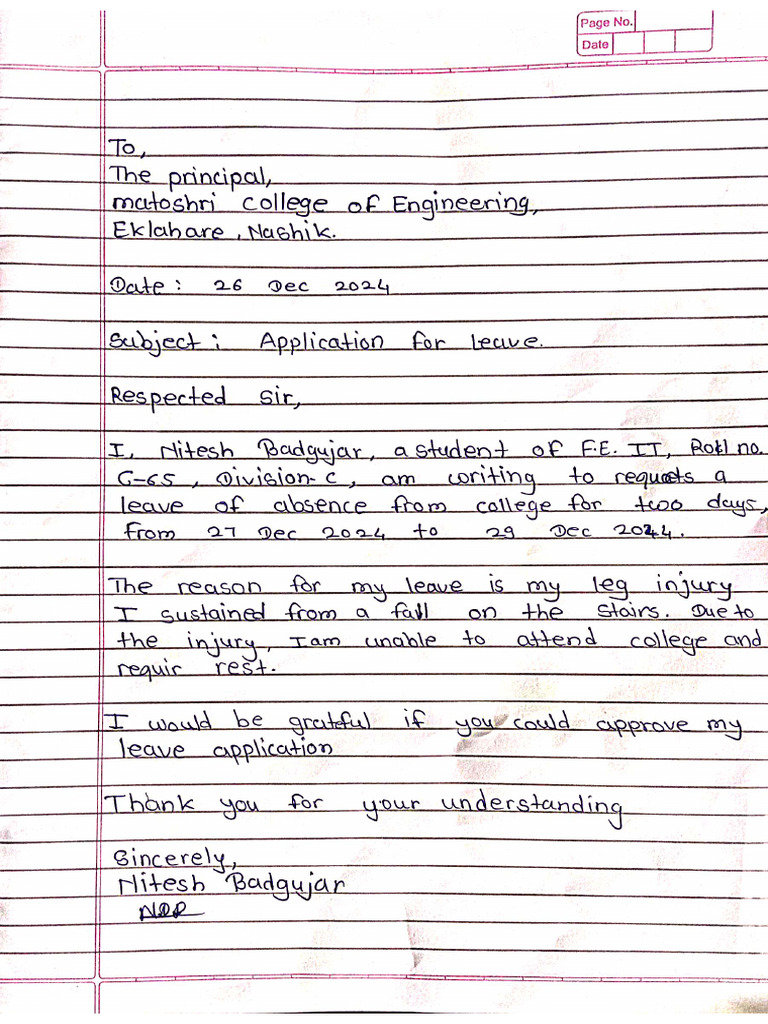 Page No.
Date
To,
The principal,
matoshri college of Engineering,
Eklahare, Nashik.
Date : 26 Dec 2024
Subject : Application for leave.
Respected sir,
I, Nitesh Badgujar, a student of F.E. IT, Roll no.
C-65, Division-C, am writing to requests a
leave of absence from college for two days,
from 27 Dec 2024 to 29 Dec 2024.
The reason for my leave is my leg injury
I sustained from a fall on the stairs. Due to
the injury, I am unable to attend college and
requir rest.
I would be grateful if you could approve my
leave application
Thank you for your understanding
Sincerely,
Nitesh Badgujar